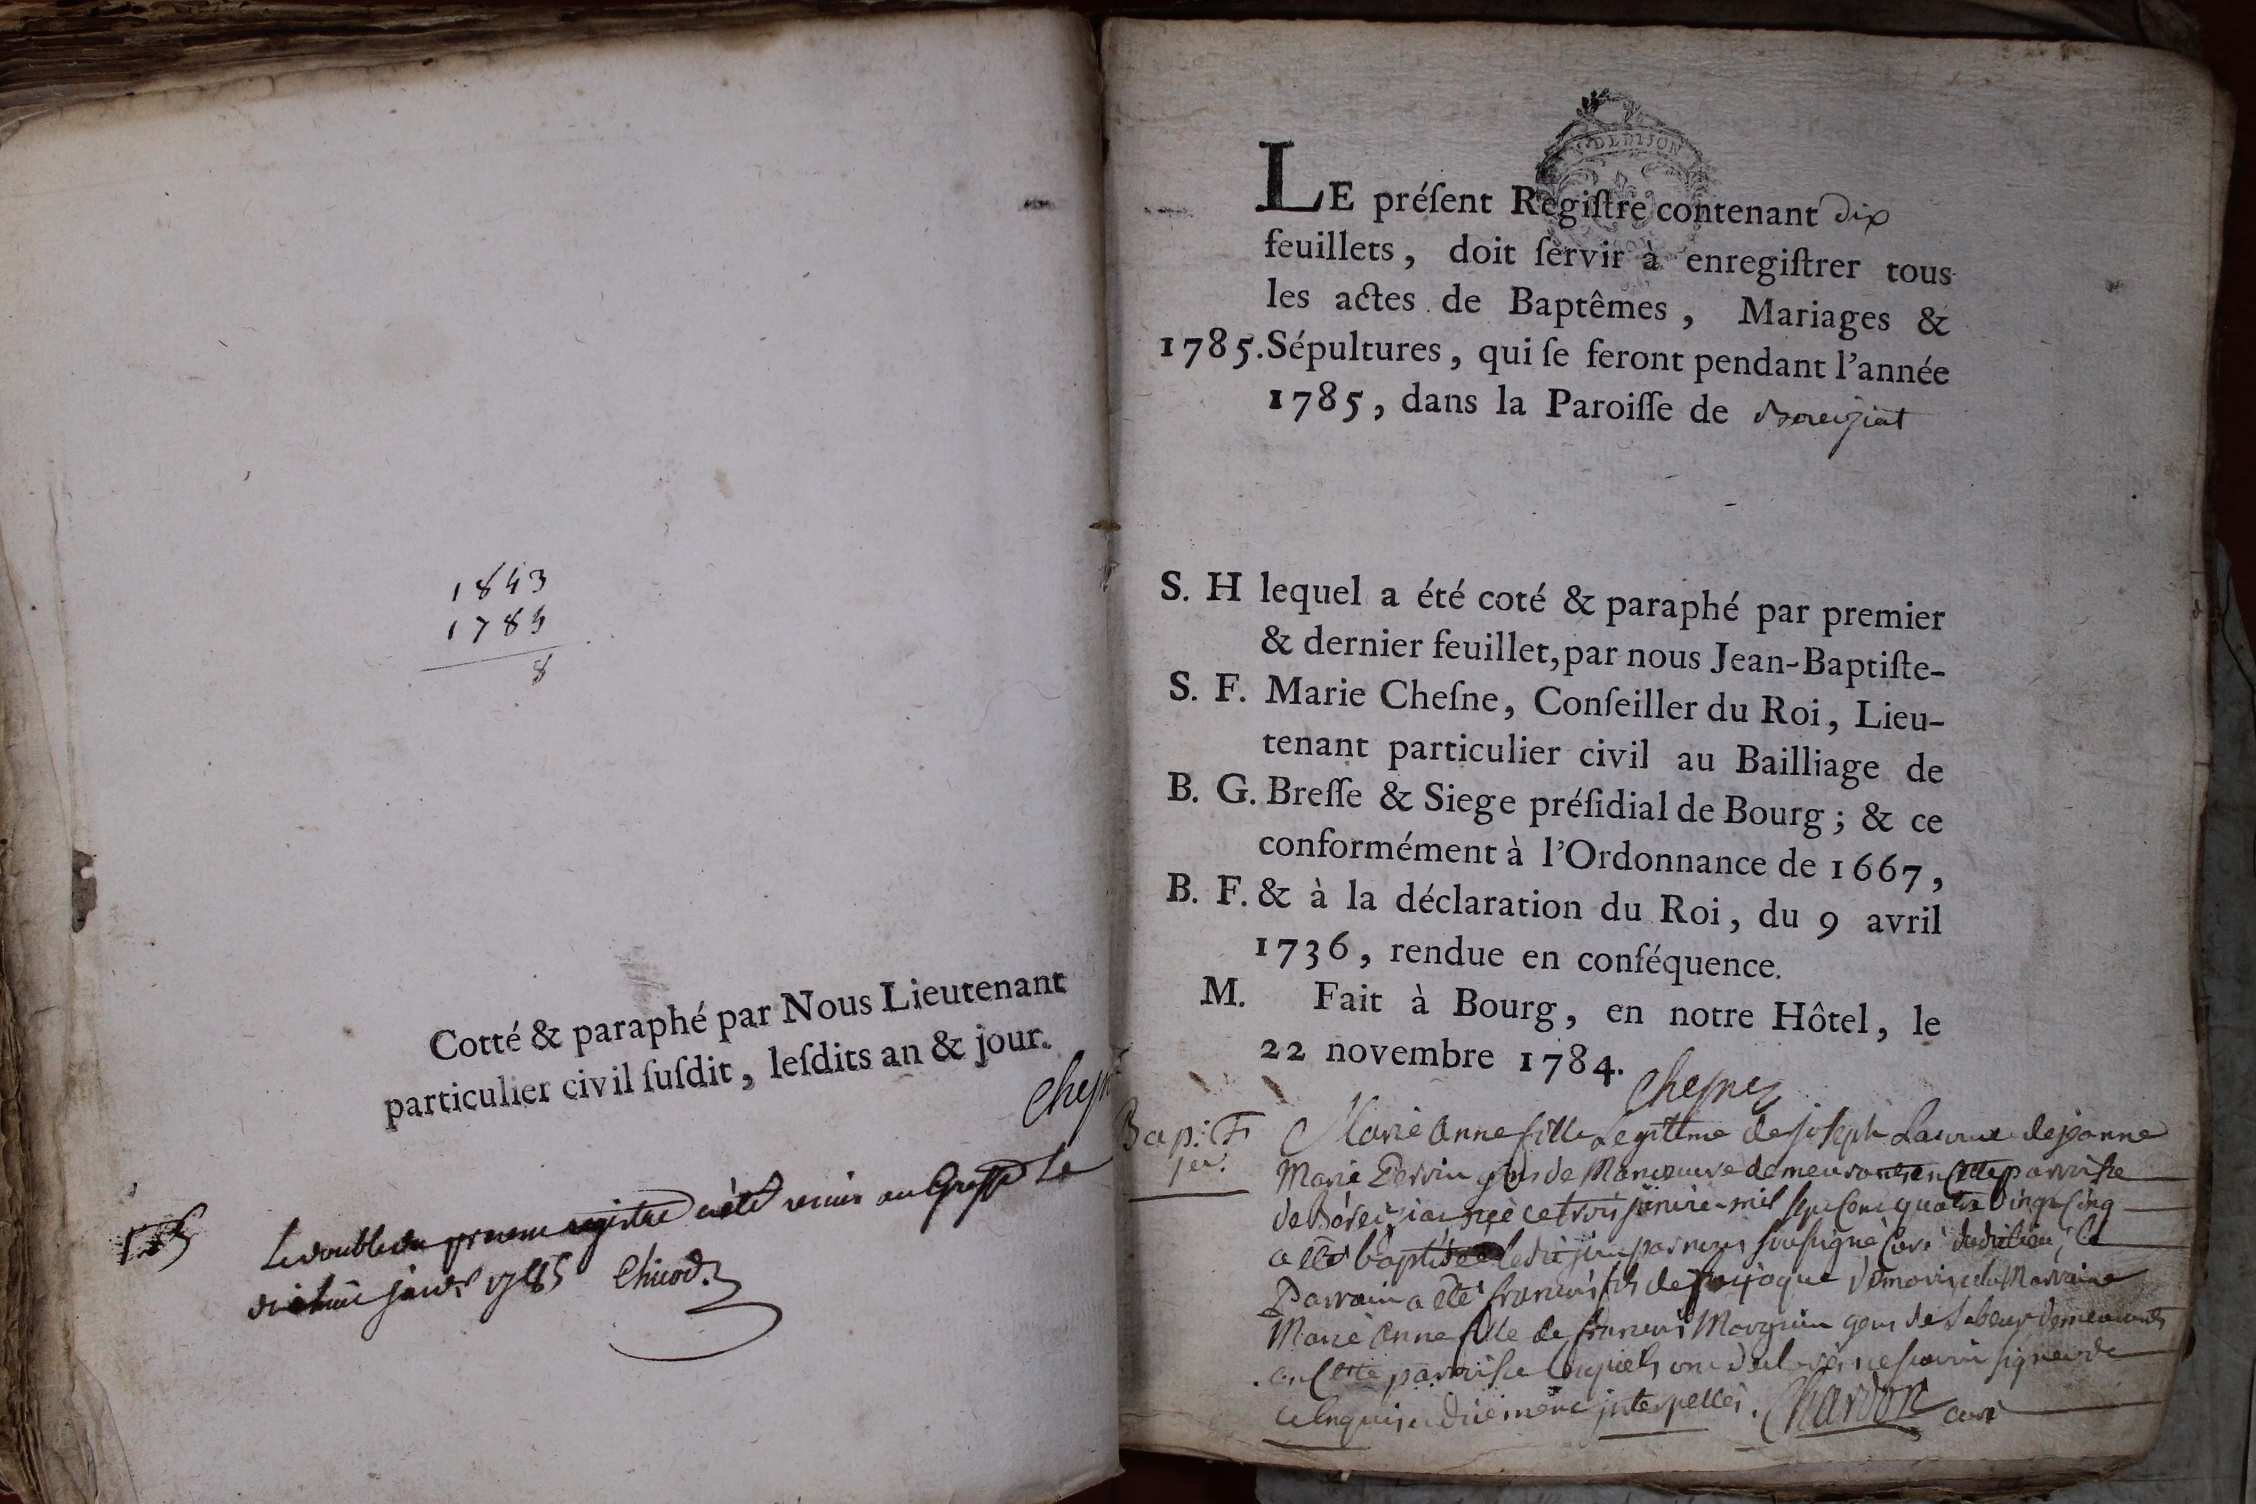 1843
1785
8
Cotté & paraphé par Nous Lieutenant
particulier civil ſuſdit, leſdits an & jour.
Chesne
Le double du present registre a été remis au Greffe le
dixhuit janvr 1785 Chicod
DE DIJON
LE préſent Regiſtre contenant dix
feuillets, doit ſervir à enregiſtrer tous
les actes de Baptêmes, Mariages &
1785. Sépultures, qui ſe feront pendant l'année
1785, dans la Paroiſſe de
S. H lequel a été coté & paraphé par premier
& dernier feuillet, par nous Jean-Baptiſte-
S. F. Marie Cheſne, Conſeiller du Roi, Lieu-
tenant particulier civil au Bailliage de
B. G. Breſſe & Siege préſidial de Bourg; & ce
conformément à l'Ordonnance de 1667,
B. F. & à la déclaration du Roi, du 9 avril
1736, rendue en conſéquence.
M. Fait à Bourg, en notre Hôtel, le
22 novembre 1784.
Chesne
Bap: F
1er.
Marie Anne fille Legitime de joseph de jeanne
Marie Perrin gens de Manœuvre demeurants en cette parroisse
de née ce trois janvier mil sept cent quatre vingt cinq
a été baptisée ledit jour par nous soussigné curé dudit lieu, le
Parrain a été francois fils de la Marraine
Marie Anne fille de francois gens de Labeur demeurants
en cette parroisse lesquels ont declarés ne scavoir signer de
ce enquis et duement interpellés. Chardon curé